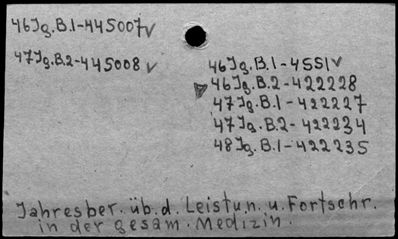 46Jg.B.1-445007✓
47Jg.B.2-445008✓
46Jg.B.1-4551✓
46Jg.B.2-422228
47Jg.B.1-422227
47Jg.B.2-422234
48Jg.B.1-422235
Jahresber. üb. d. Leistun. u. Fortschr.
in der gesam. Medizin.